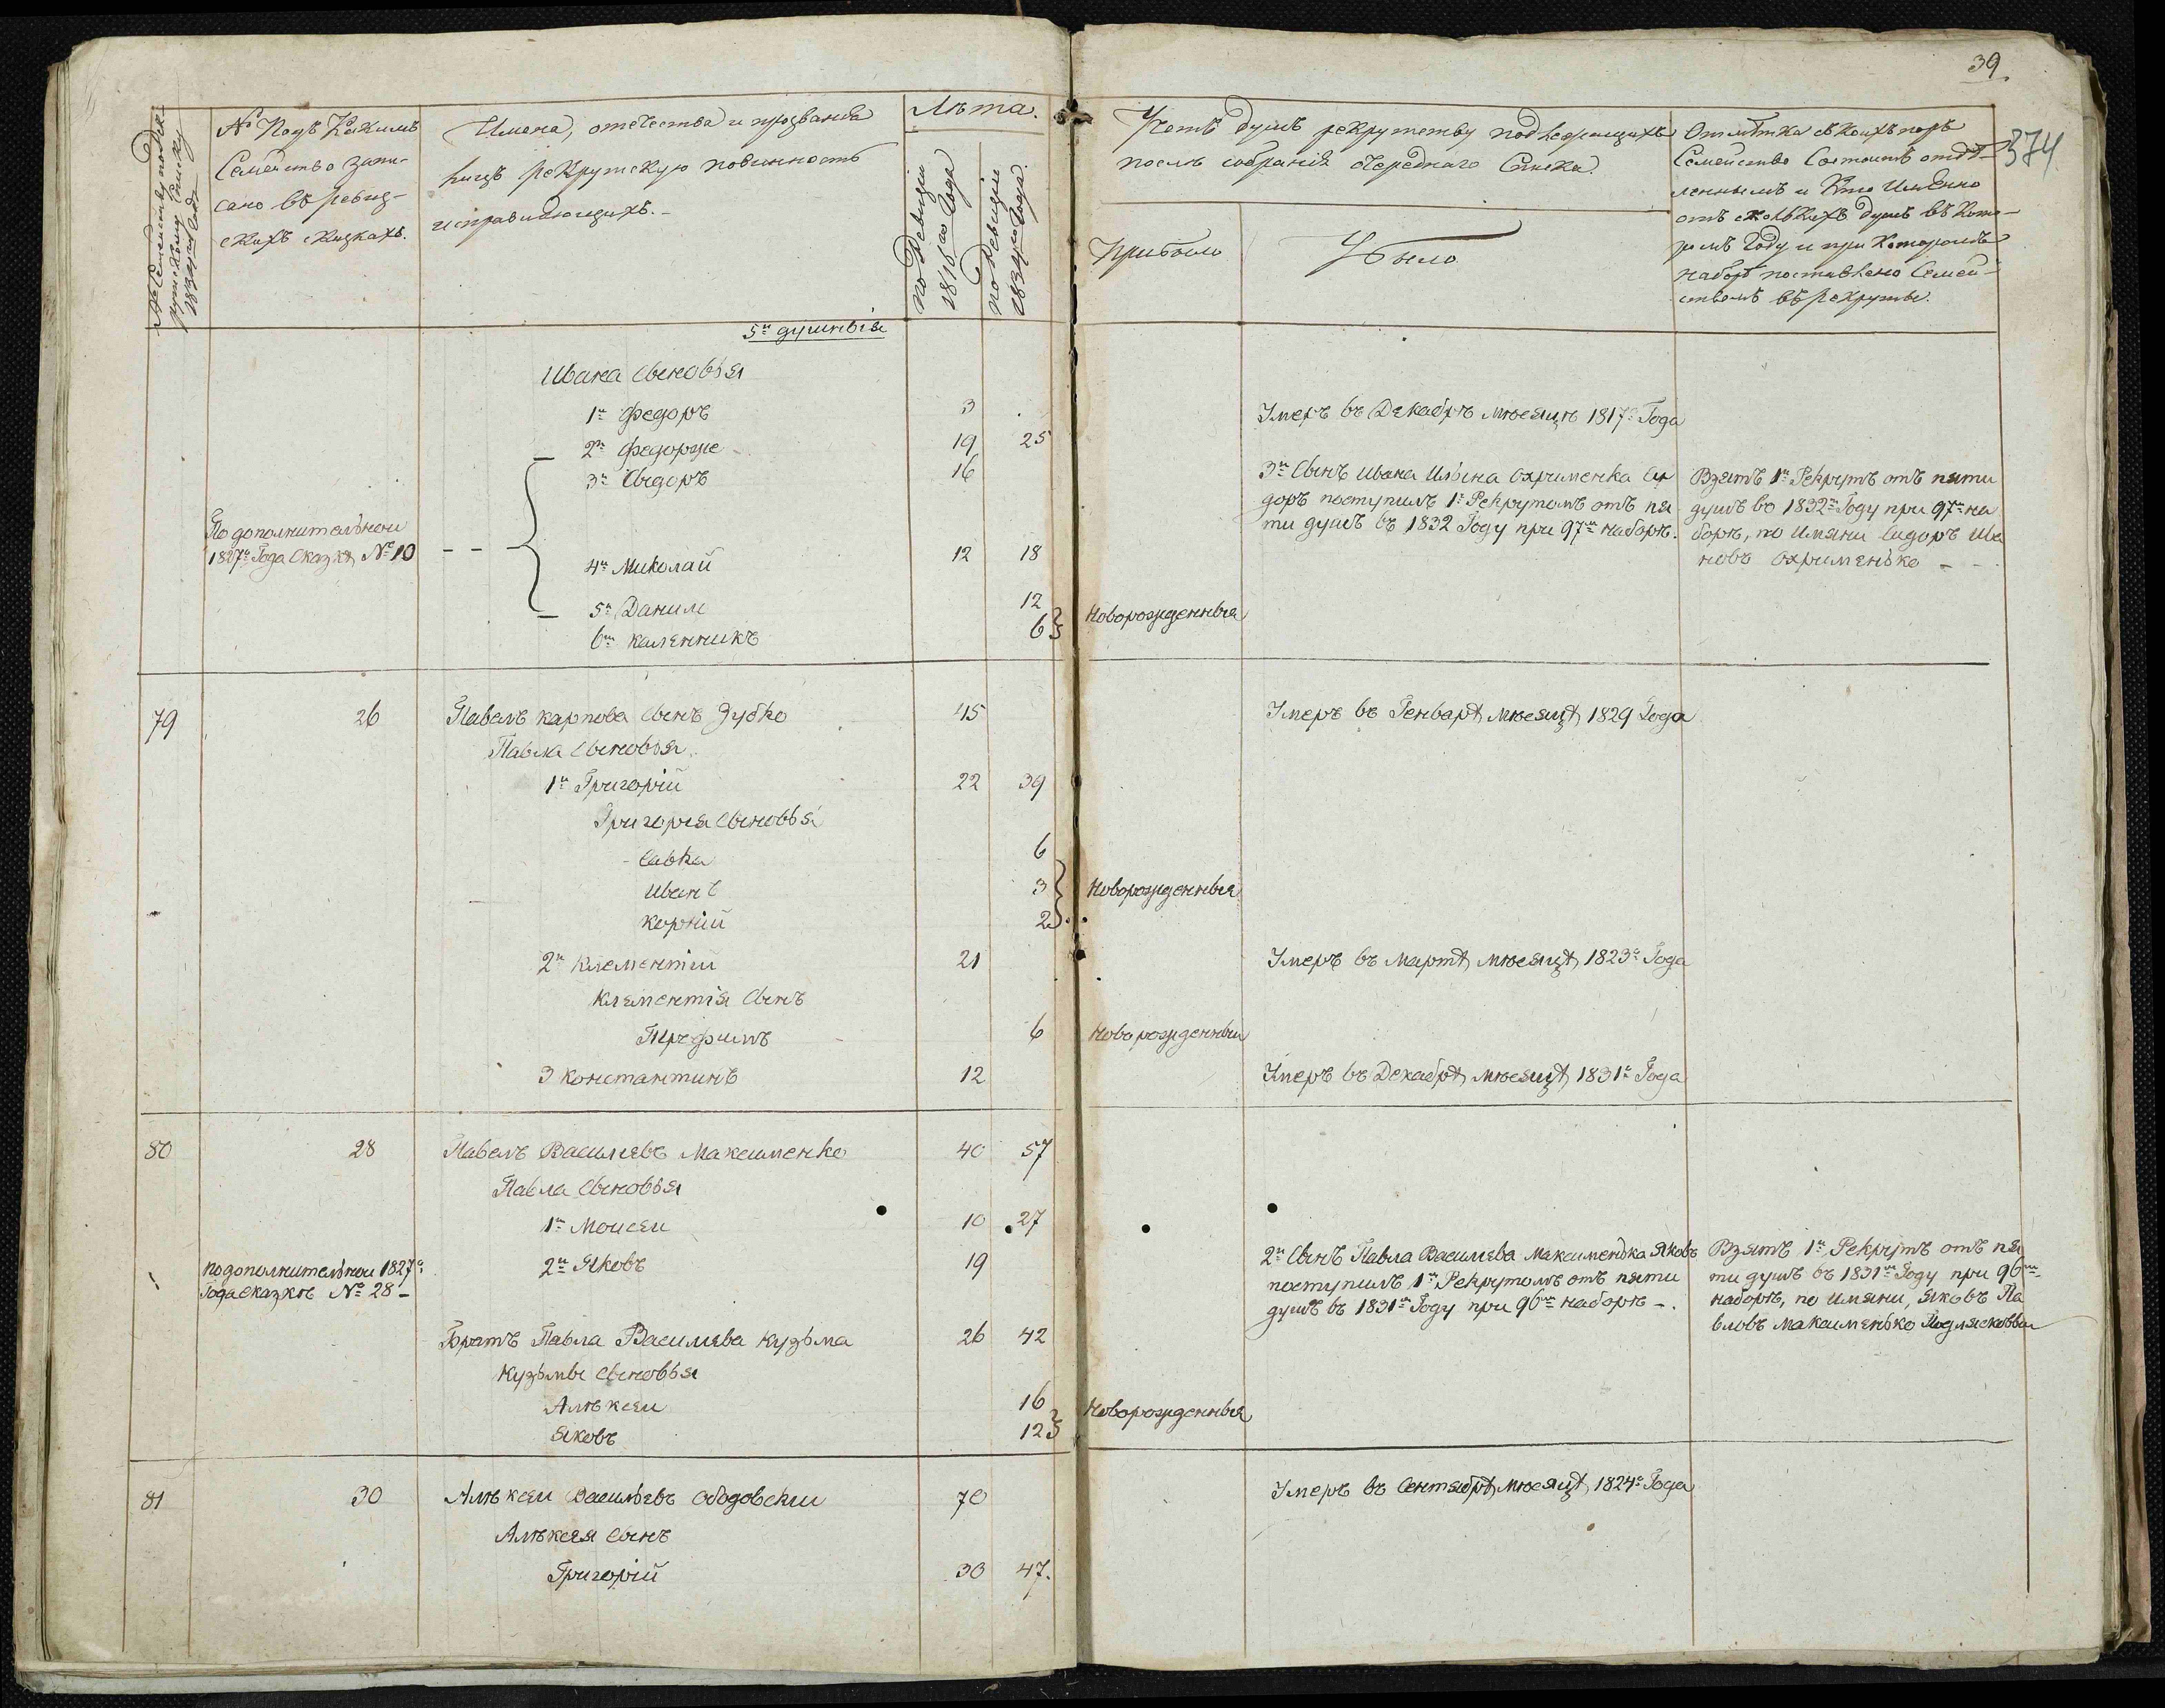 39
374
№ Семейству по Рек
рутскому Списку
1834го Года
№ Подъ Какимъ
Семейство запи-
сано въ ревиз-
скихъ сказкахъ.
Имена, отчества и прозванія
лицъ рекрутскую повинность
исправляющихъ. -
Лѣта.
по Ревизіи
1816го Года
по Ревизіи
1834го Года.
Учетъ душъ рекрутству подлежащихъ
послѣ собранія очереднаго Списка.
Прибыло
Убыло
Отмѣтка съ коихъ поръ
Семейство Состоитъ отдѣ-
леннымъ и Кто Имѣнно
отъ сколькихъ душъ въ Кото-
ромъ Году и при Которомъ
наборѣ поставлено Семей-
ствомъ въ рекруты.
5и душныя
Ивана Сыновья
1й Федоръ 3 Умеръ въ Декабрѣ мѣсяцѣ 1817го Года
2й Федорже 19 25
3й Сидоръ 16
3й Сынъ Ивана Ильина Охрименка Си
доръ поступилъ 1й Рекрутомъ отъ пя
ти душъ въ 1832 Году при 97м наборѣ.
Взятъ 1й Рекрутъ отъ пяти
душъ во 1832м Году при 97м на
борѣ, по Имяни Сидоръ Ива
новъ Охрименько -
По дополнительной
1827го Года Сказкѣ № 10
4й Миколай 12 18
5й Данило 12
6й Каленникъ 6 Новорожденныя
79 26 Павелъ карпова Сынъ Зубко 45 Умеръ въ Генварѣ мѣсяцѣ 1829 Года
Павла Сыновья
1й Григорій 22 39
Григорія Сыновья
Савка 6
Иванъ 3 Новорожденныя
Корній 2
2й Клементій 21 Умеръ въ Мартѣ мѣсяцѣ 1823го Года
Клементія Сынъ
Трофимъ 6 Новорожденный
3 Константинъ 12 Умеръ въ Декабрѣ мѣсяцѣ 1831го Года
80 28 Павелъ Васильевъ Максименко 40 57
Павла Сыновья
1й Моисеи 10 27
2й Яковъ 19
по дополнительной 1827го
Года сказкѣ № 28 -
2й Сынъ Павла Васильева Максименька Яковъ
поступилъ 1й Рекрутомъ отъ пяти
душъ въ 1831м Году при 96м наборѣ -.
Взятъ 1й Рекрутъ отъ пя
ти душъ въ 1831м Году при 96м
наборѣ, по имяни, Яковъ Па
вловъ Максименько
Братъ Павла Васильева Кузьма 26 42
Кузьмы Сыновья
Алѣксеи 16
Яковъ 12 Новорожденныя
81 30 Алѣксеи Васильевъ Ободовски 70 Умеръ въ Сентябрѣ мѣсяцѣ 1824го Года
Алѣксея Сынъ
Григорій 30 47.